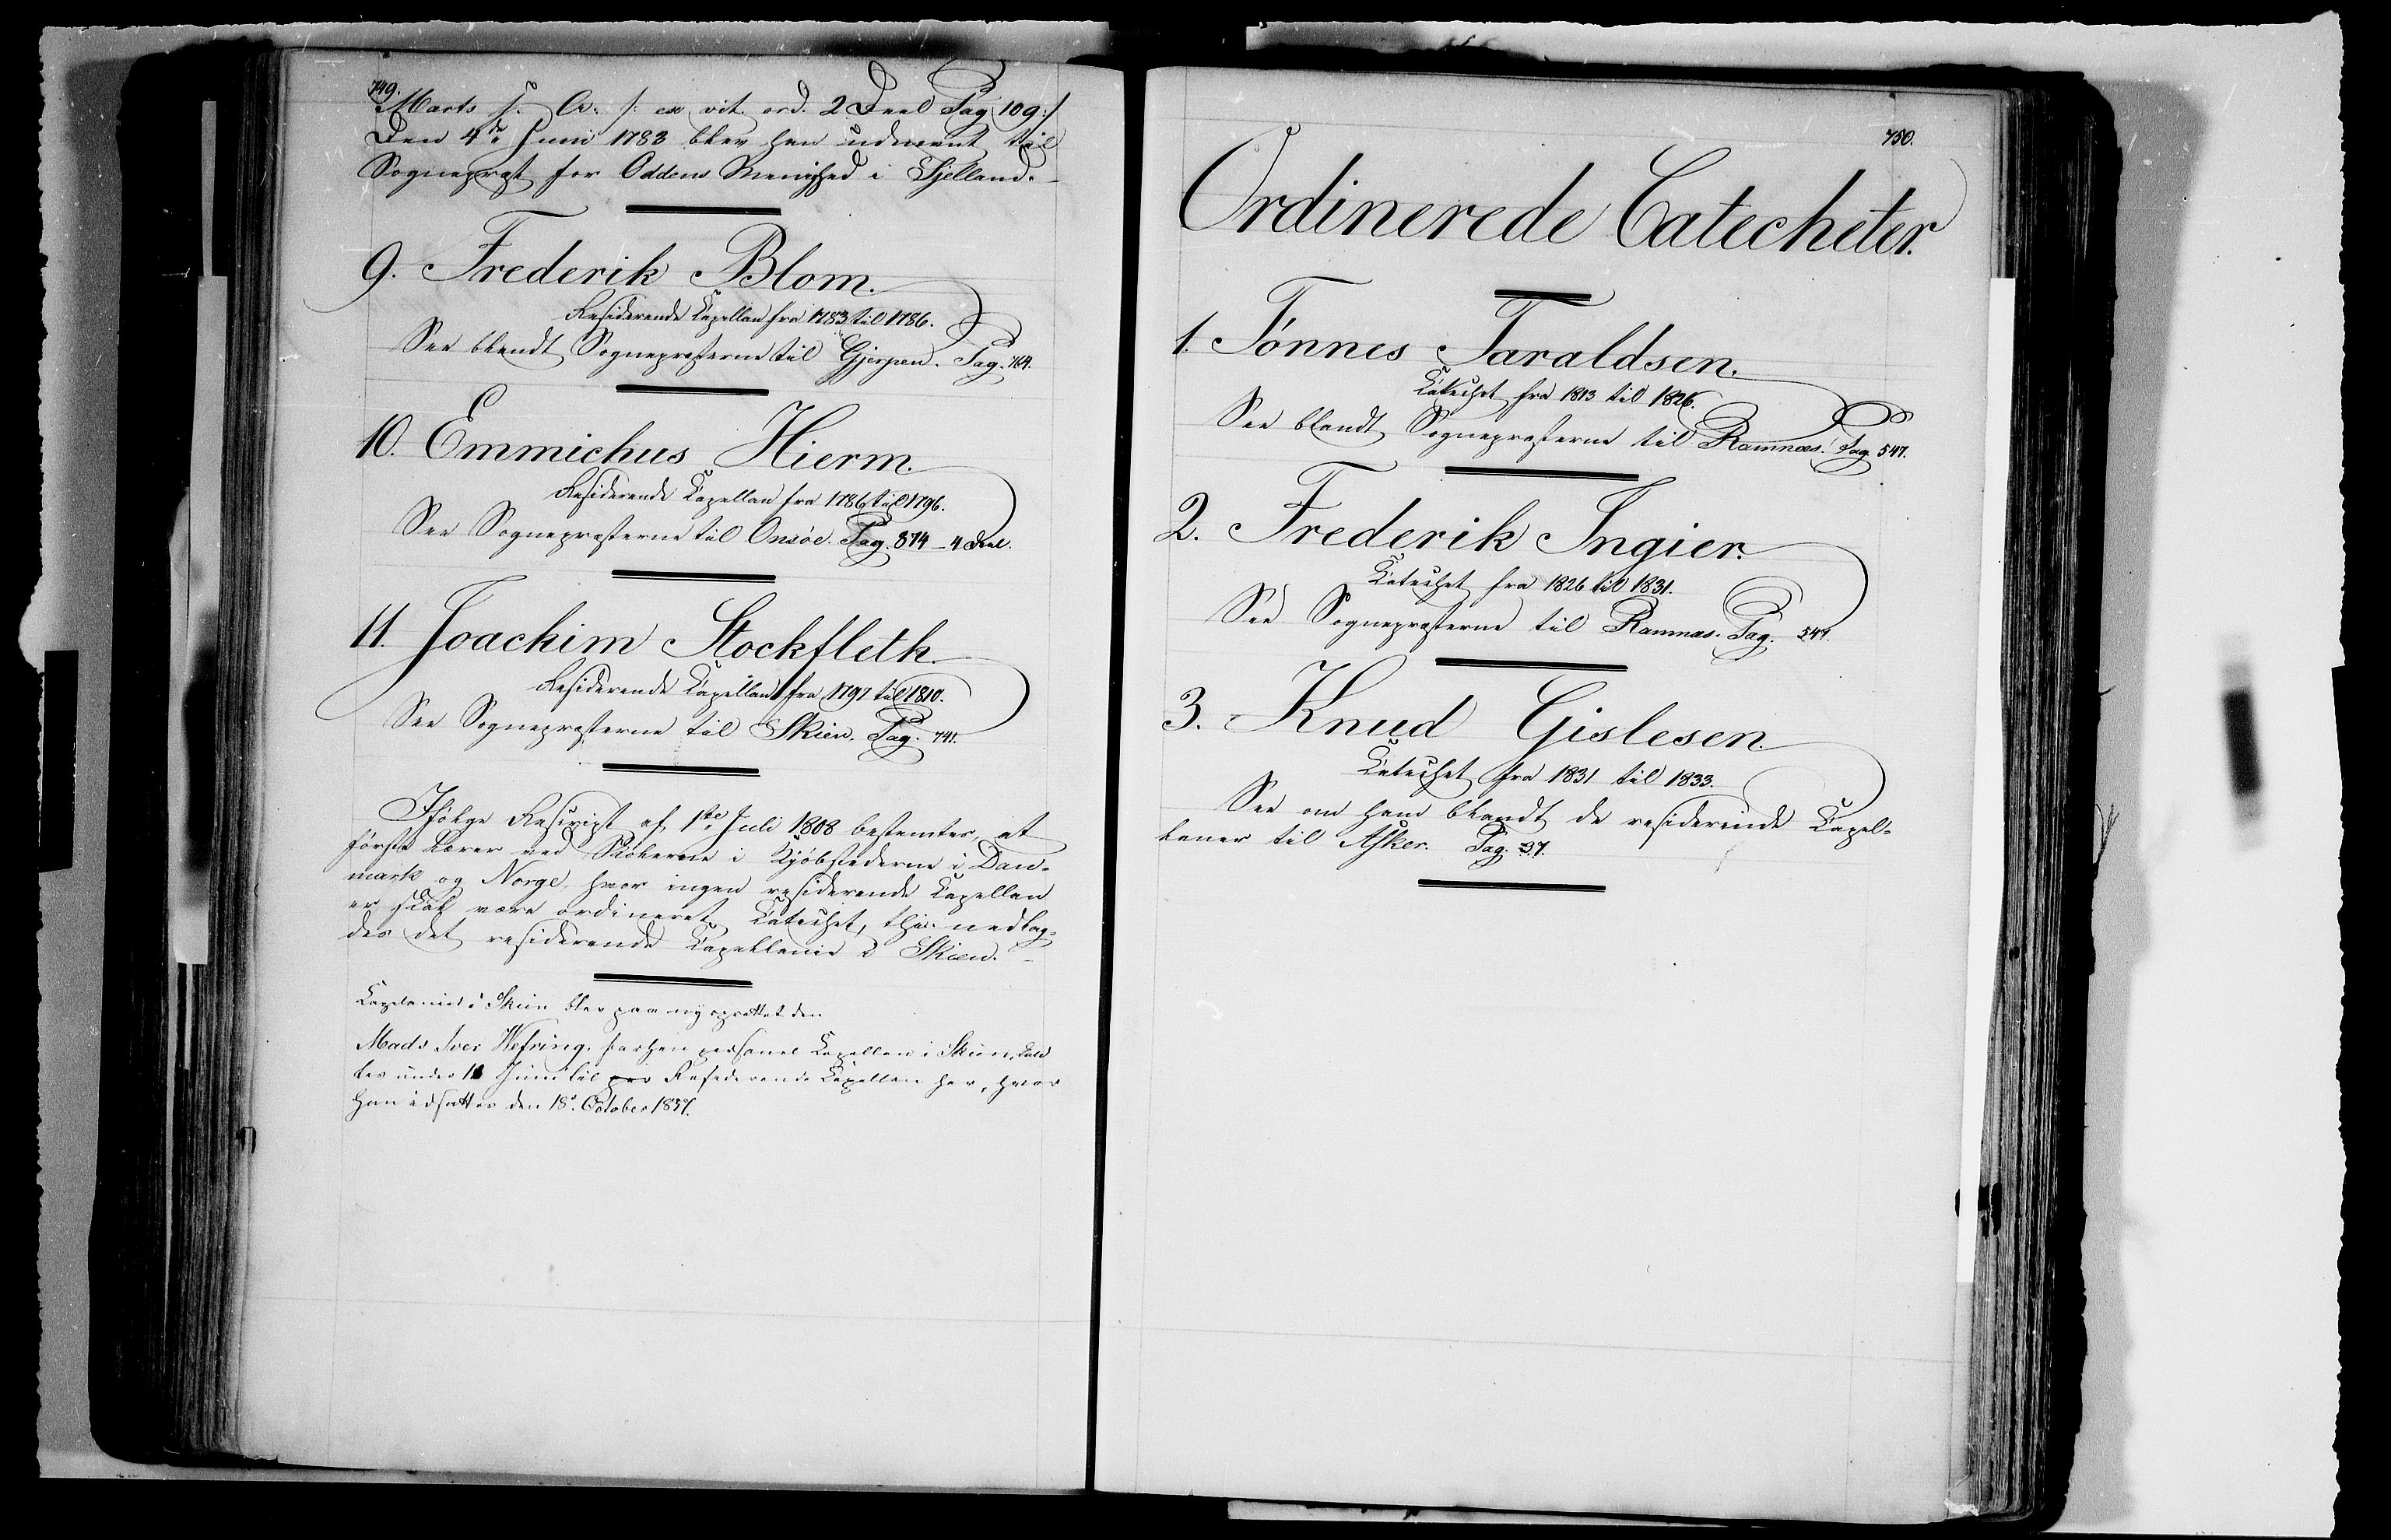 749.
Marts s. A. /: ex vit. ord. 2 Deel Pag 109 :/
Den 4de Juni 1783 blev han udnævnt til
Sognepræst for Oddens Menighed i Sjelland. -
9. Frederik Blom.
Residerende Capellan fra 1783 til 1786.
See blandt Sognepræsterne til Gjerpen. Pag. 764.
10. Emmichus Hierm.
Residerende Capellan fra 1786 til 1796.
See Sognepræsterne til Onsöe. Pag. 874 - 4 Deel.
11. Joachim Stockfleth.
Residerende Capellan fra 1797 til 1810.
See Sognepræsterne til Skien. Pag. 741.
Ifölge Rescript af 1ste Juli 1808 bestemtes, at
förste Lærer ved Skolerne i Kjöbstederne i Dan-
mark og Norge, hvor ingen residerende Capellan
er skal være ordineret Catechet, thi nedlag-
des det residerende Capellanie i Skien. -
Capelaniet i Skien blev paa ny oprettet den
Mads Iver Wefring, forhen personel Capellan i Skien, kald
tes under Juni til Residerende Capellan her, hvor
han indsattes den 18. October 1837.
750.
Ordinerede Catecheter.
1. Tönnes Taraldsen.
Catechet fra 1813 til 1826.
See blandt Sognepræsterne til Ramnæs. Pag. 547.
2. Frederik Ingier.
Catechet fra 1826 til 1831.
See Sognepræsterne til Ramnæs. Pag. 547.
3. Knud Gislesen.
Catechet fra 1831 til 1833.
See om ham blandt de residerende Capel-
laner til Asker. Pag. 37.